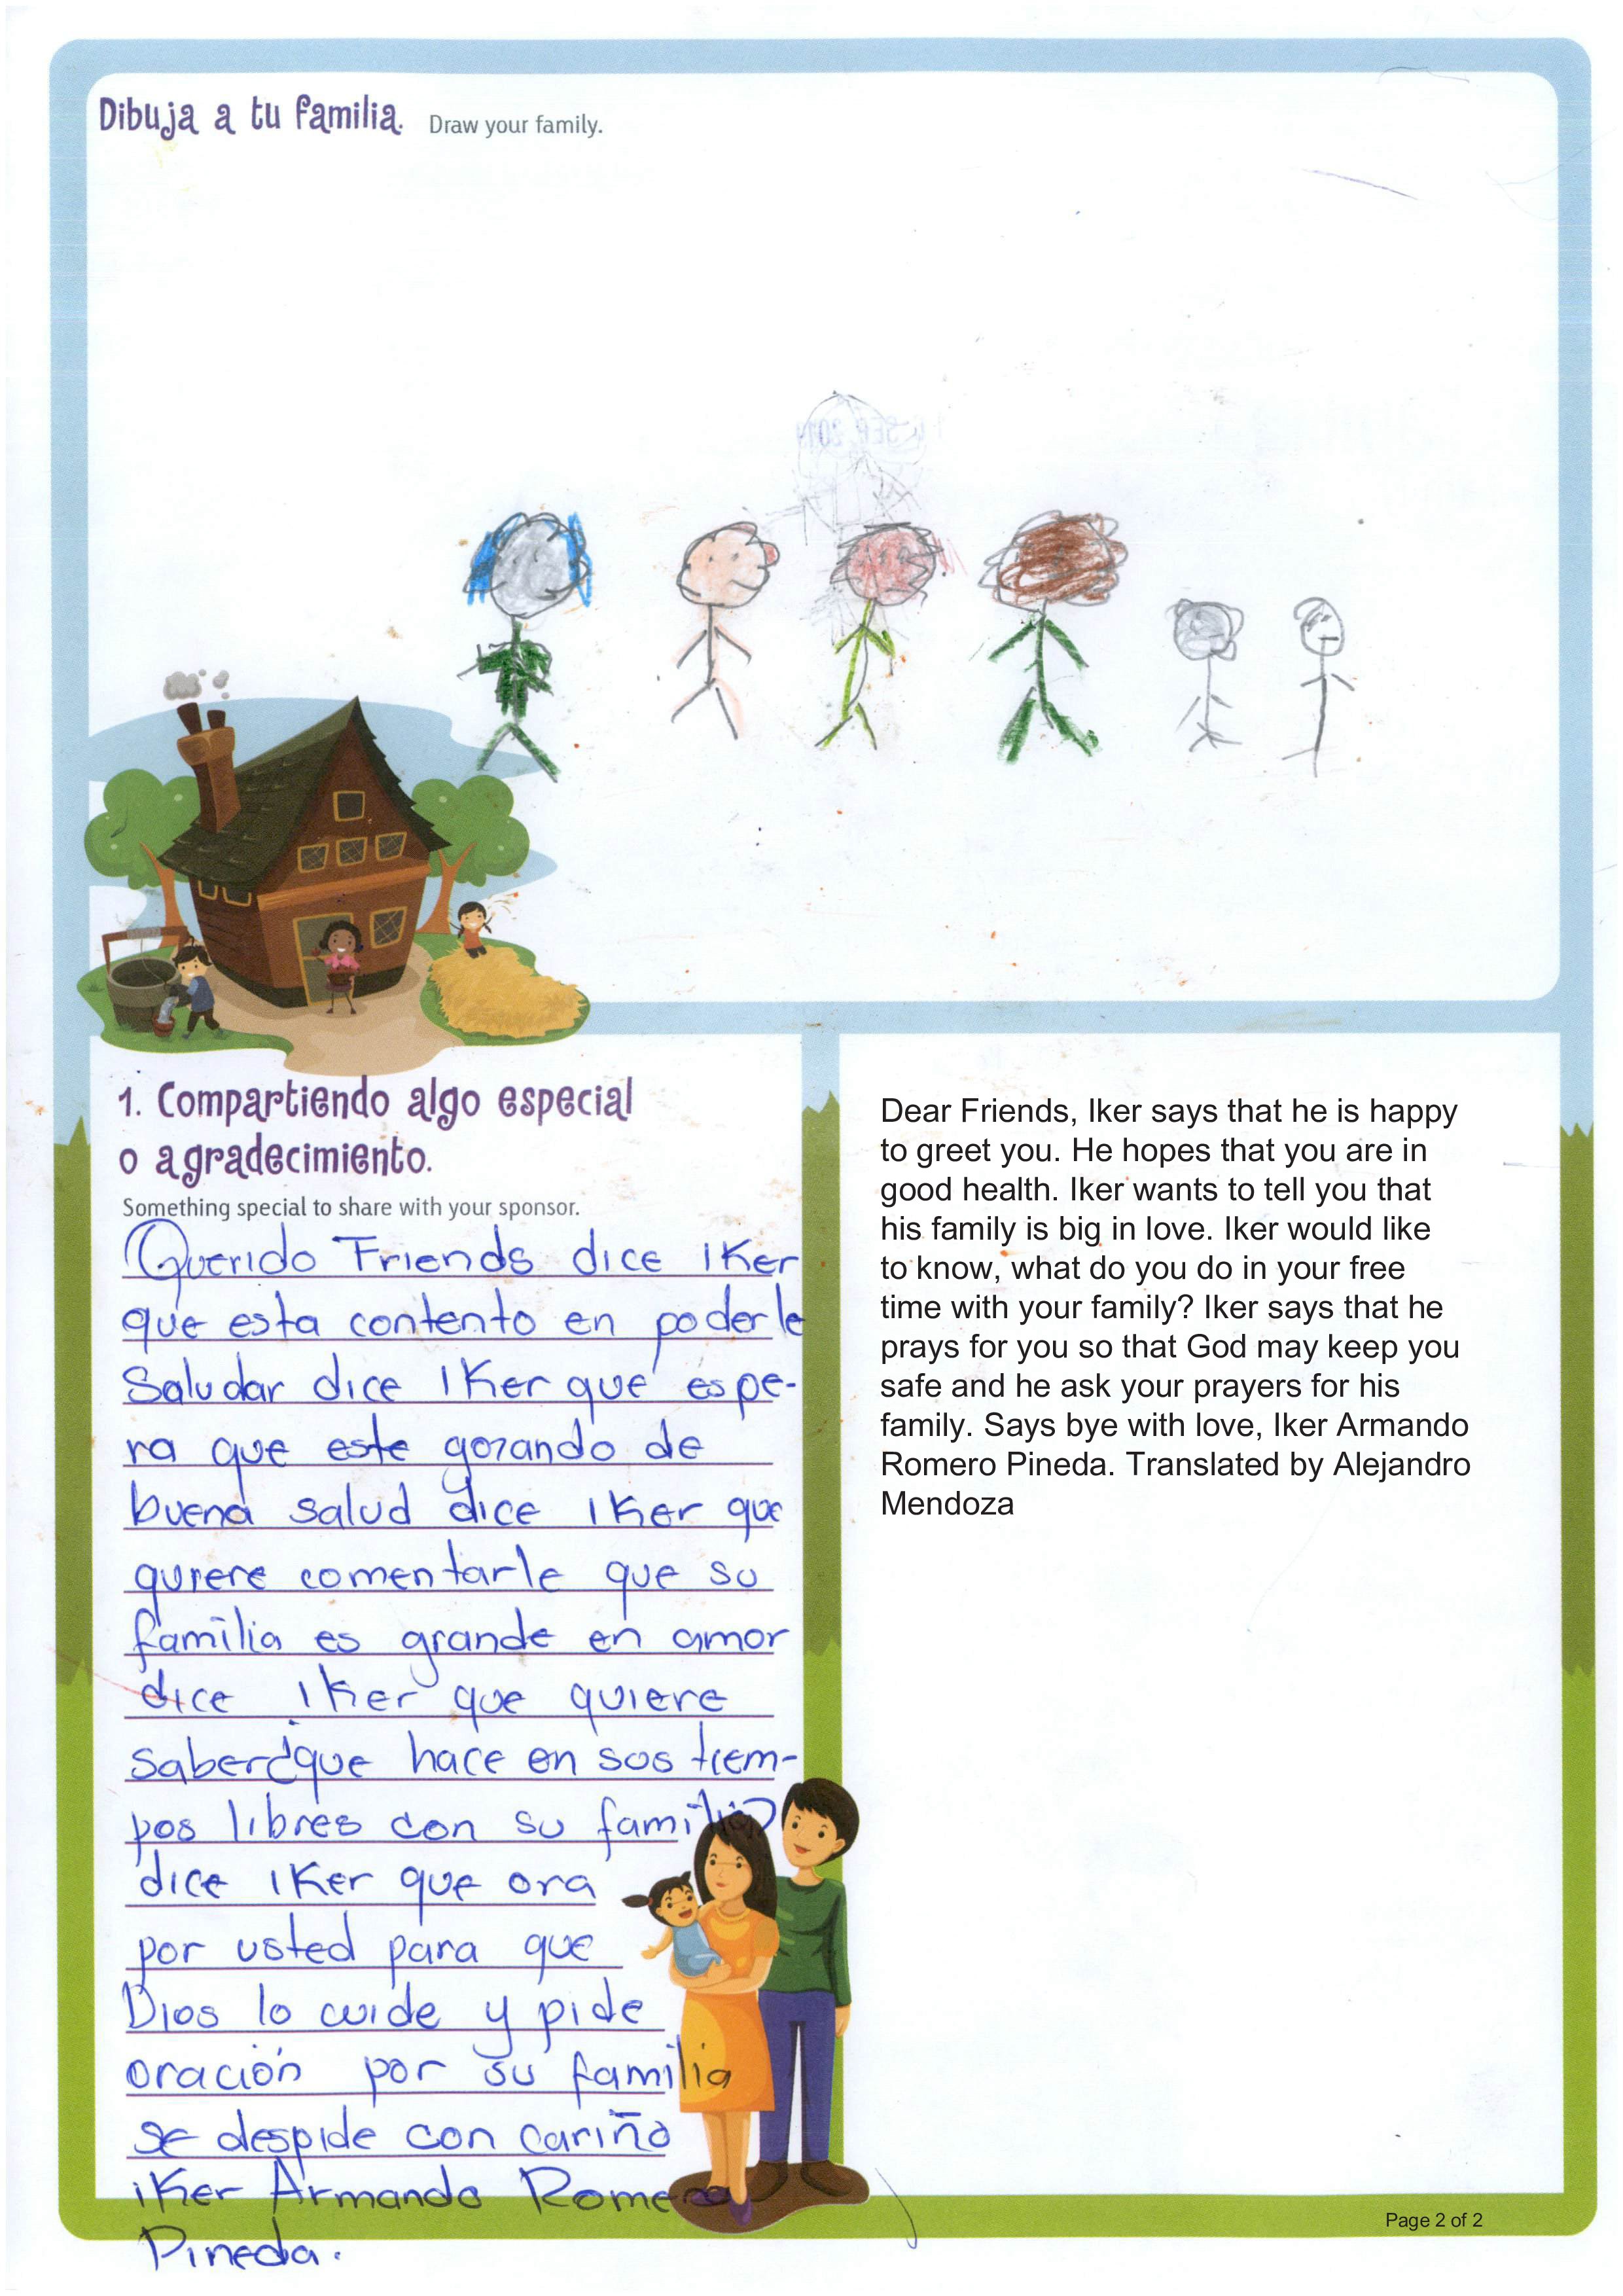 Dibuja a tu familia. Draw your family.
1. Compartiendo algo especial
o agradecimiento.
Something special to share with your sponsor.
Querido Friends dice iKer
que esta contento en poderle
Saludar dice iKer que espe-
ra que este gozando de
buena salud dice iKer que
quiere comentarle que su
familia es grande en amor
dice iKer que quiere
saber ¿que hace en sus tiem-
pos libres con su familia?
dice iKer que ora
por usted para que
Dios lo cuide y pide
oración por su familia
se despide con cariño
iKer Armando Romero
Pineda.
Dear Friends, Iker says that he is happy
to greet you. He hopes that you are in
good health. Iker wants to tell you that
his family is big in love. Iker would like
to know, what do you do in your free
time with your family? Iker says that he
prays for you so that God may keep you
safe and he ask your prayers for his
family. Says bye with love, Iker Armando
Romero Pineda. Translated by Alejandro
Mendoza
Page 2 of 2